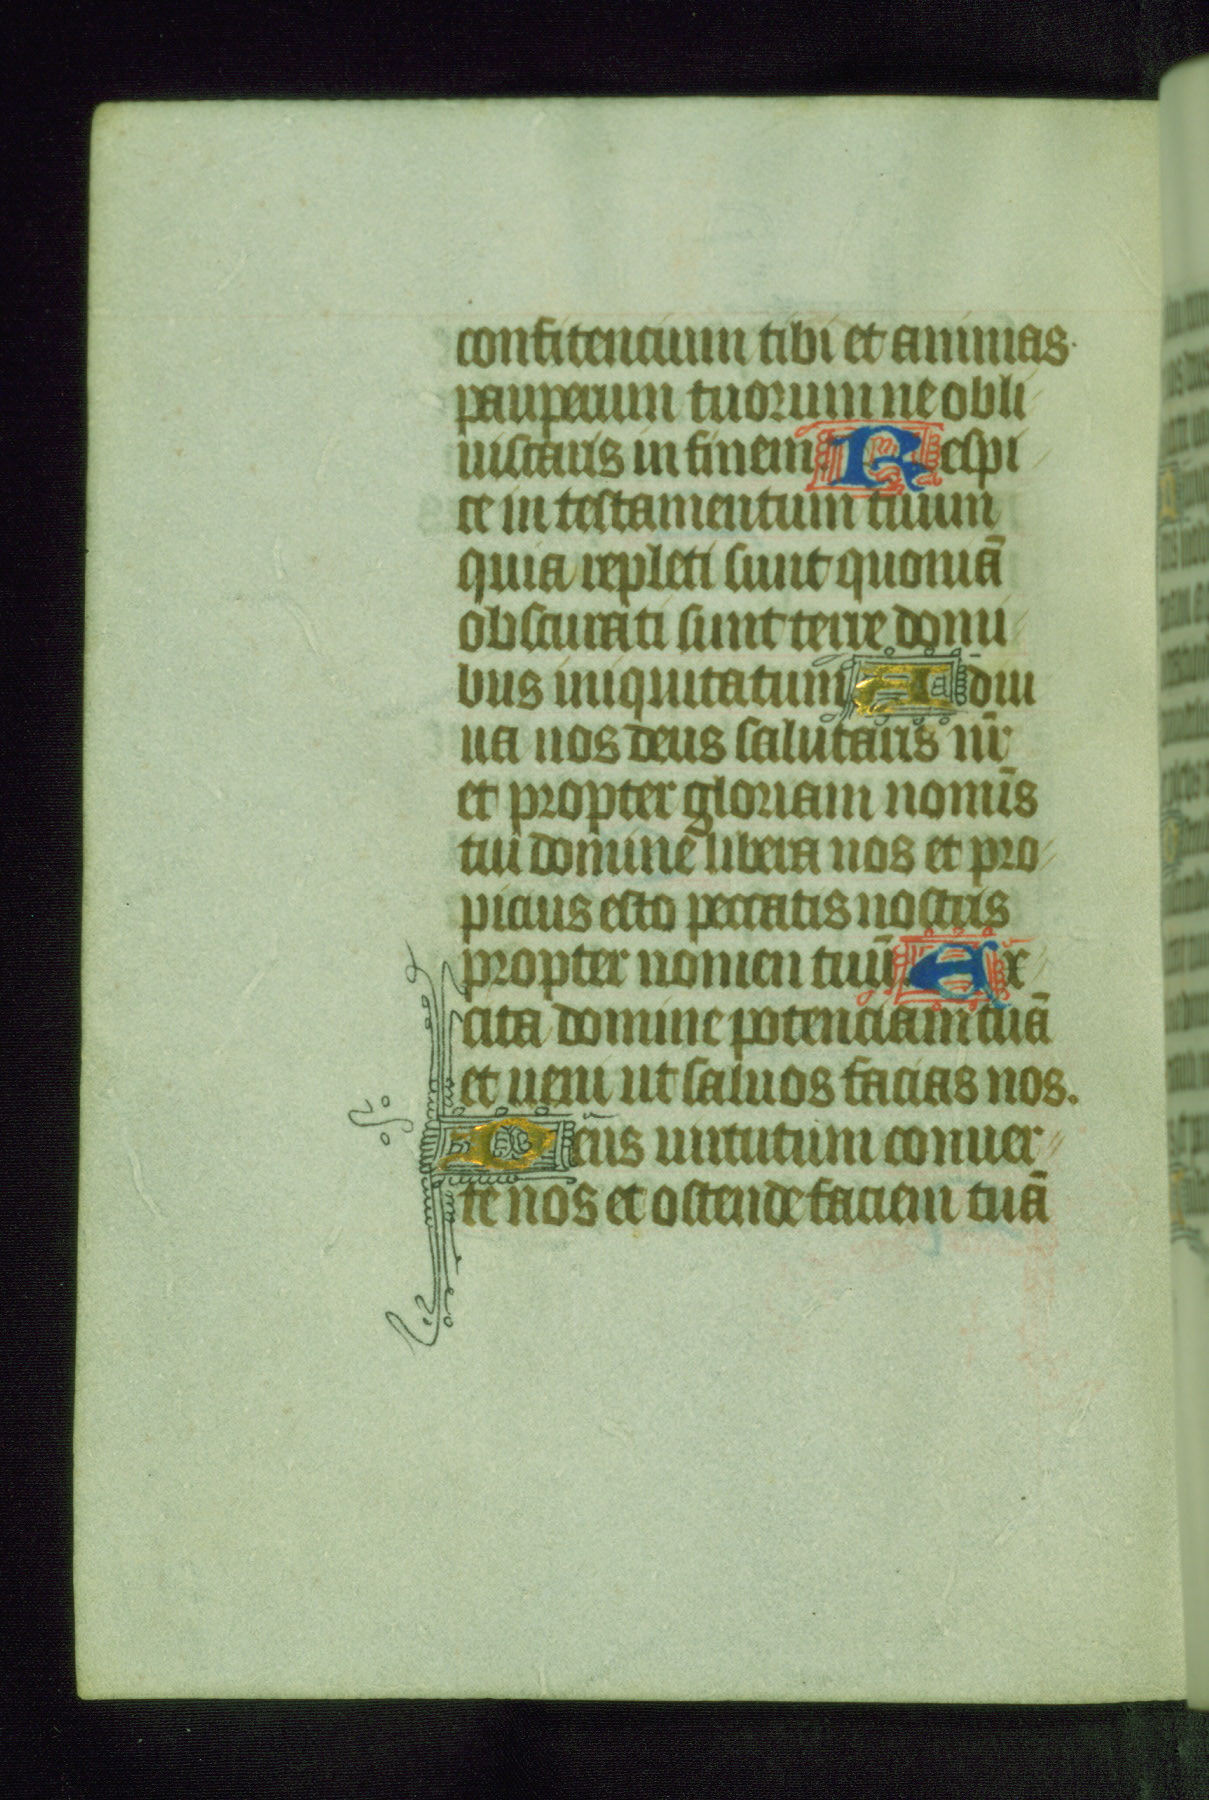 confitencium tibi et animas
pauperum tuorum ne obli
uiscaris in finem Respi
ce in testamentum tuum
quia repleti sunt quoniā
obscurati sunt terre domi
bus iniquitatum Adiu
ua nos deus salutaris nr̄
et propter gloriam nomīs
tui domine libera nos et pro
picius esto peccatis nostris
propter nomen tuū Ex
cita domine potenciam tuā
et ueni ut saluos facias nos.
Deus uirtutum conuer
te nos et ostende faciem tuā